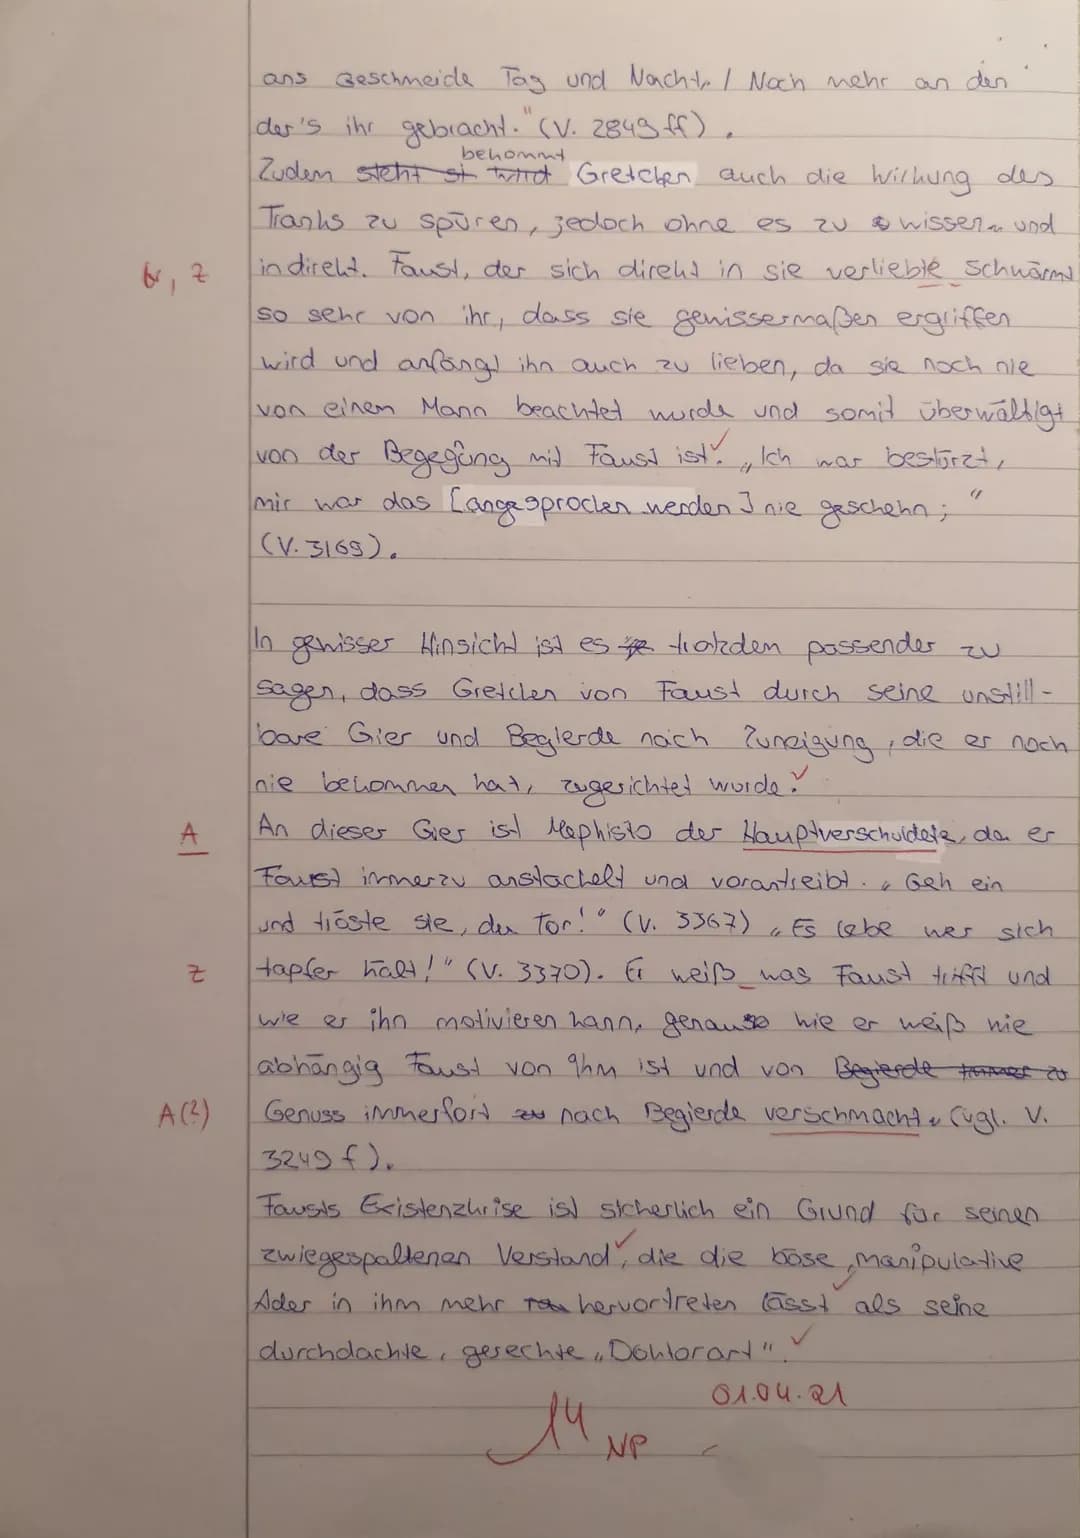 ans Geschmeide Tag und Nacht, / Noch mehr an den
der's ihr gebracht." (V. 2849 ff).
bekommt
Zudem steht st wird Gretchen auch die Wirkung des
Tranks zu spüren, jedoch ohne es zu wissen und
Gr, Z indirekt. Faust, der sich direkt in sie verliebte schwärmt
so sehr von ihr, dass sie gewissermaßen ergriffen
wird und anfängt ihn auch zu lieben, da sie noch nie
von einem Mann beachtet wurde und somit überwältigt
von der Begegung mit Faust ist. „Ich war bestürzt,
mir war das [angesprochen werden] nie geschehn;"
(V. 3169).
In gewisser Hinsicht ist es trotzdem passender zu
sagen, dass Gretchen von Faust durch seine unstill-
bare Gier und Begierde nach Zuneigung, die er noch
nie bekommen hat, zugerichtet wurde.
A An dieser Gier ist Mephisto der Hauptverschuldete, da er
Faust immerzu anstachelt und vorantreibt. „Geh ein
und tröste sie, du Tor!" (V. 3367) „Es lebe wer sich
Z tapfer hält!" (V. 3370). Er weiß was Faust trifft und
wie er ihn motivieren kann, genauso wie er weiß wie
abhängig Faust von Ihm ist und von Begierde immer zu
A(?) Genuss immerfort zu nach Begierde verschmacht. (vgl. V.
3249 f).
Fausts Existenzkrise ist sicherlich ein Grund für seinen
zwiegespaltenen Verstand, die die böse, manipulative
Ader in ihm mehr hervortreten lässt als seine
durchdachte, gerechte „Doktorart".
01.04.21
14 NP